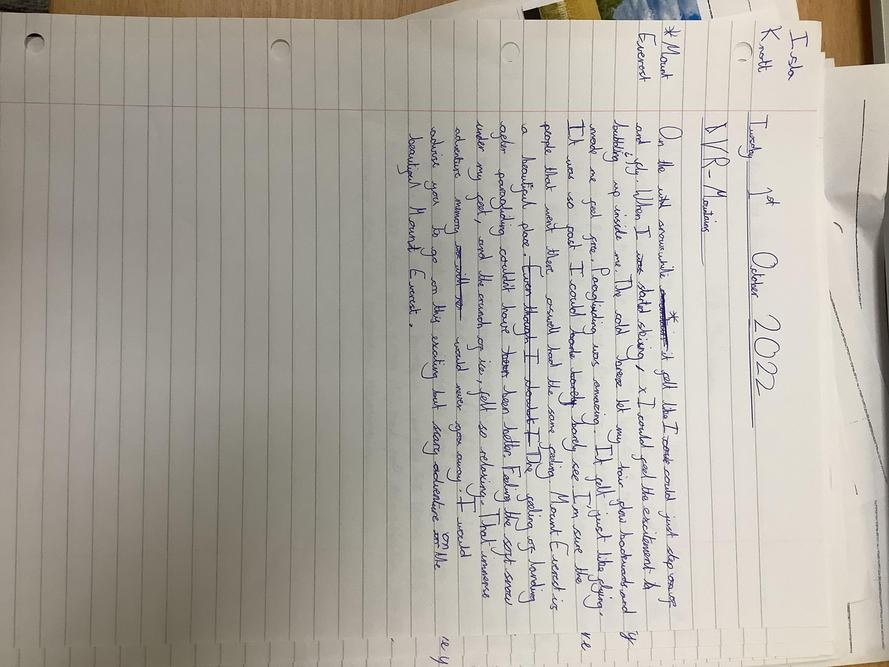 Isla
Knott
Tuesday 1st October 2022
VR-Mountains
* Mount
Everest
On the wild snow while * it felt like I could just step off
and fly. When I started skiing, x I could feel the excitement
bubbling up inside me. The cold breeze let my hair flow backwards and
made me feel free. Paragliding was amazing. It felt just like flying.
It was so fast I could barely see. I'm sure the
people that went there aswell had the same feeling. Mount Everest is
a beautiful place. Even though I The feeling of landing
after paragliding couldn't have been better. Feeling the soft snow
under my feet, and the crunch of ice, felt so relaxing. That immense
adventure memory would never go away. I would
advise you to go on this exciting but scary adventure on the
beautiful Mound Everest.
y
re
re y